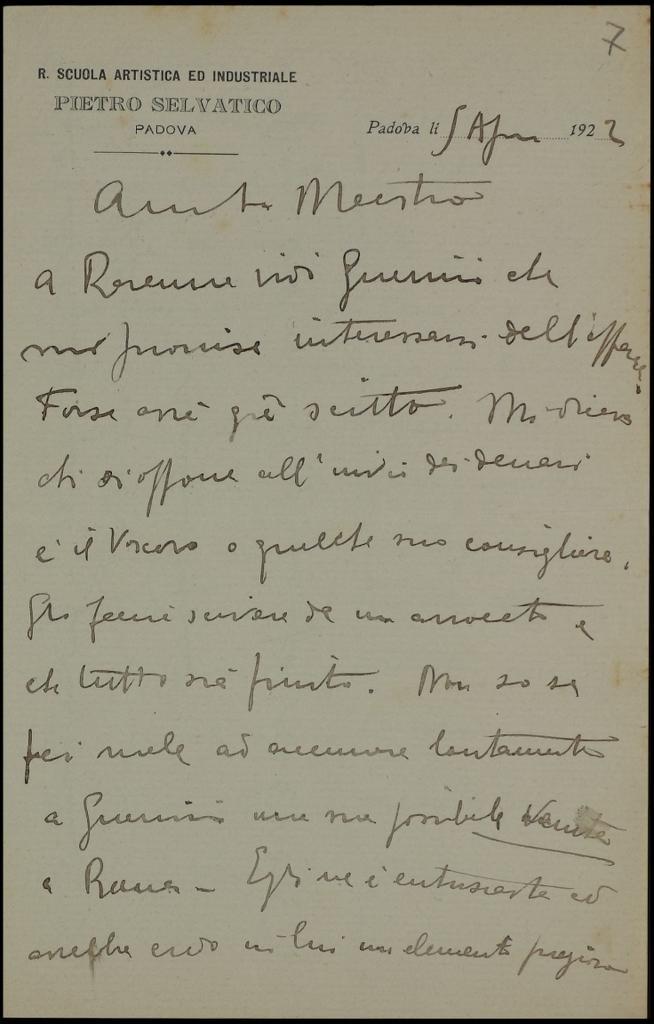 7
R. SCUOLA ARTISTICA ED INDUSTRIALE
PIETRO SELVATICO
PADOVA
Padova li 5 Apr 1922
Maestro
a Ravenna vidi Guerrini che
mi promise interessarsi dell'affare.
Forse avrà già scritto. Mi diceva
chi si oppone all'invio dei denari
è il Vescovo o qualche suo consigliere.
Gli faccia scrivere da un avvocato e
che tutto sia finito. Non so se
feci male ad accennare lontanamente
a Guerrini una sua possibile venuta
a Ravenna – Egli ne è entusiasta ed
avrebbe credo in lui un elemento